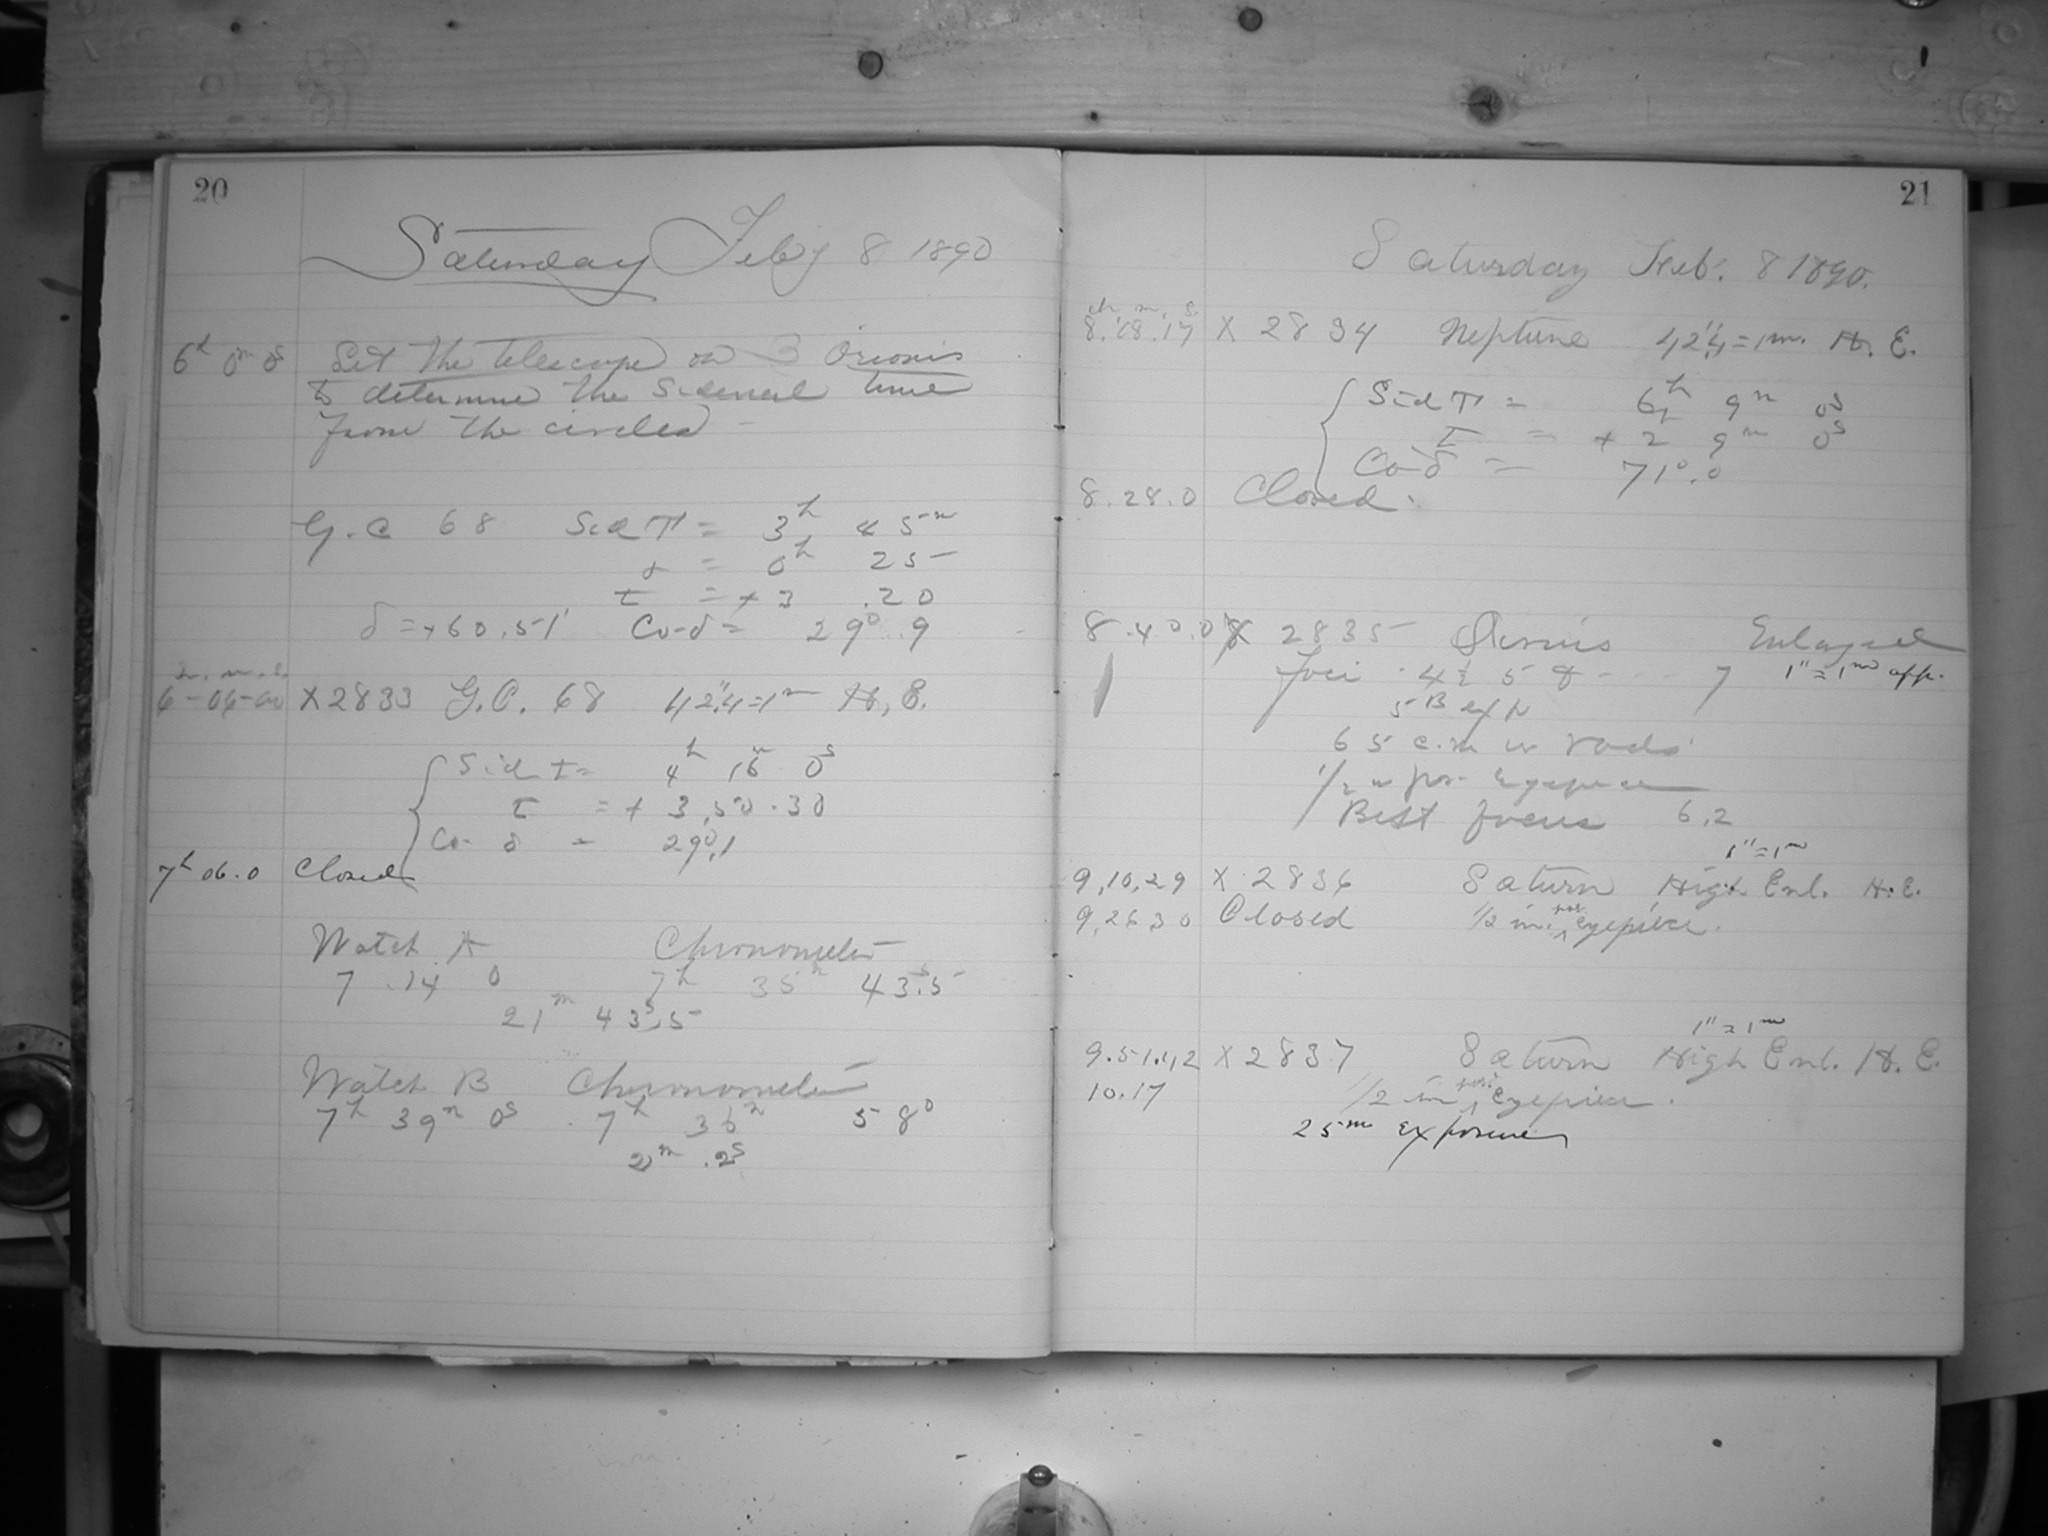 20
Saturday Feby 8 1890
6h 0m 0s Set the telescope on β Orionis
to determine the Sidereal time
from the circles
G.C 68 Sid T = 3h 45m
α = 0h 25
τ = + 3 .20
δ = +60.51' Co-δ = 29°.9
h. m. s.
6-06-00 X 2833 G.C. 68 42".4=1m H, E.
Sid T = 4h 16m 0s
τ = + 3.50.30
Co- δ = 29°.1
7h 06.0 Closed
Watch A Chronometer
7 .14 0 7h 35m 43s.5
21m 43s.5
Watch B Chronometer
7h 39m 0s 7h 36m 58s
2m .2s
21
Saturday Feb. 8 1890.
h. m. s.
8.18.17 X 2834 Neptune 42".4=1m. H. E.
Sid T = 6h 9m 0s
τ = + 2 9m 0s
Co-δ = 71°.0
8.28.0 Closed.
8.40.0 X 2835 Enlarged
foci 4½ 5 7 1"=1m app.
5
65 c.m in rods
1/2 in pos. eyepiece
Best focus 6.2
1"=1m
9,10,29 X 2836 Saturn High Enl. H.E.
9,26 30 Closed 1/2 in. pos. eyepiece.
1"=1m
9.51.42 X 2837 Saturn High Enl. H. E.
10.17 1/2 in pos. eyepiece.
25m exposure